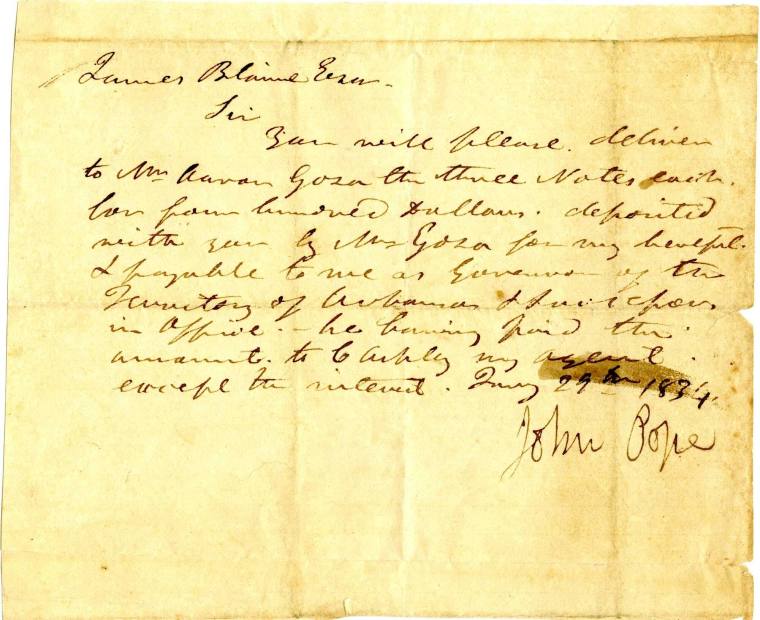 James Blaine Esqr
Sir
You will please. deliver
to Mr Aaron Goza the three Notes each.
for four hundred Dollars. deposited
with you by Mr Goza for my benefit.
& payable to me as Governor of the
Territory of Arkansas & Successors
in Office - he having paid the
amount. to C Ashley my agent.
except the interest. Jany 29th 1834
John Pope